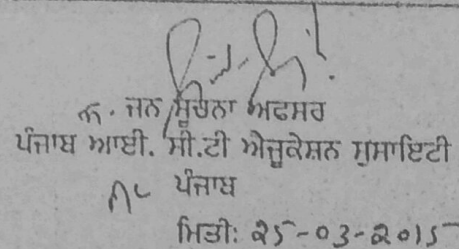 ਜਨ ਸੂਚਨਾ ਅਫਸਰ
ਪੰਜਾਬ ਆਈ. ਸੀ.ਟੀ ਐਜੂਕੇਸ਼ਨ ਸੁਸਾਇਟੀ
ਪੰਜਾਬ
ਮਿਤੀ: 25-03-2015